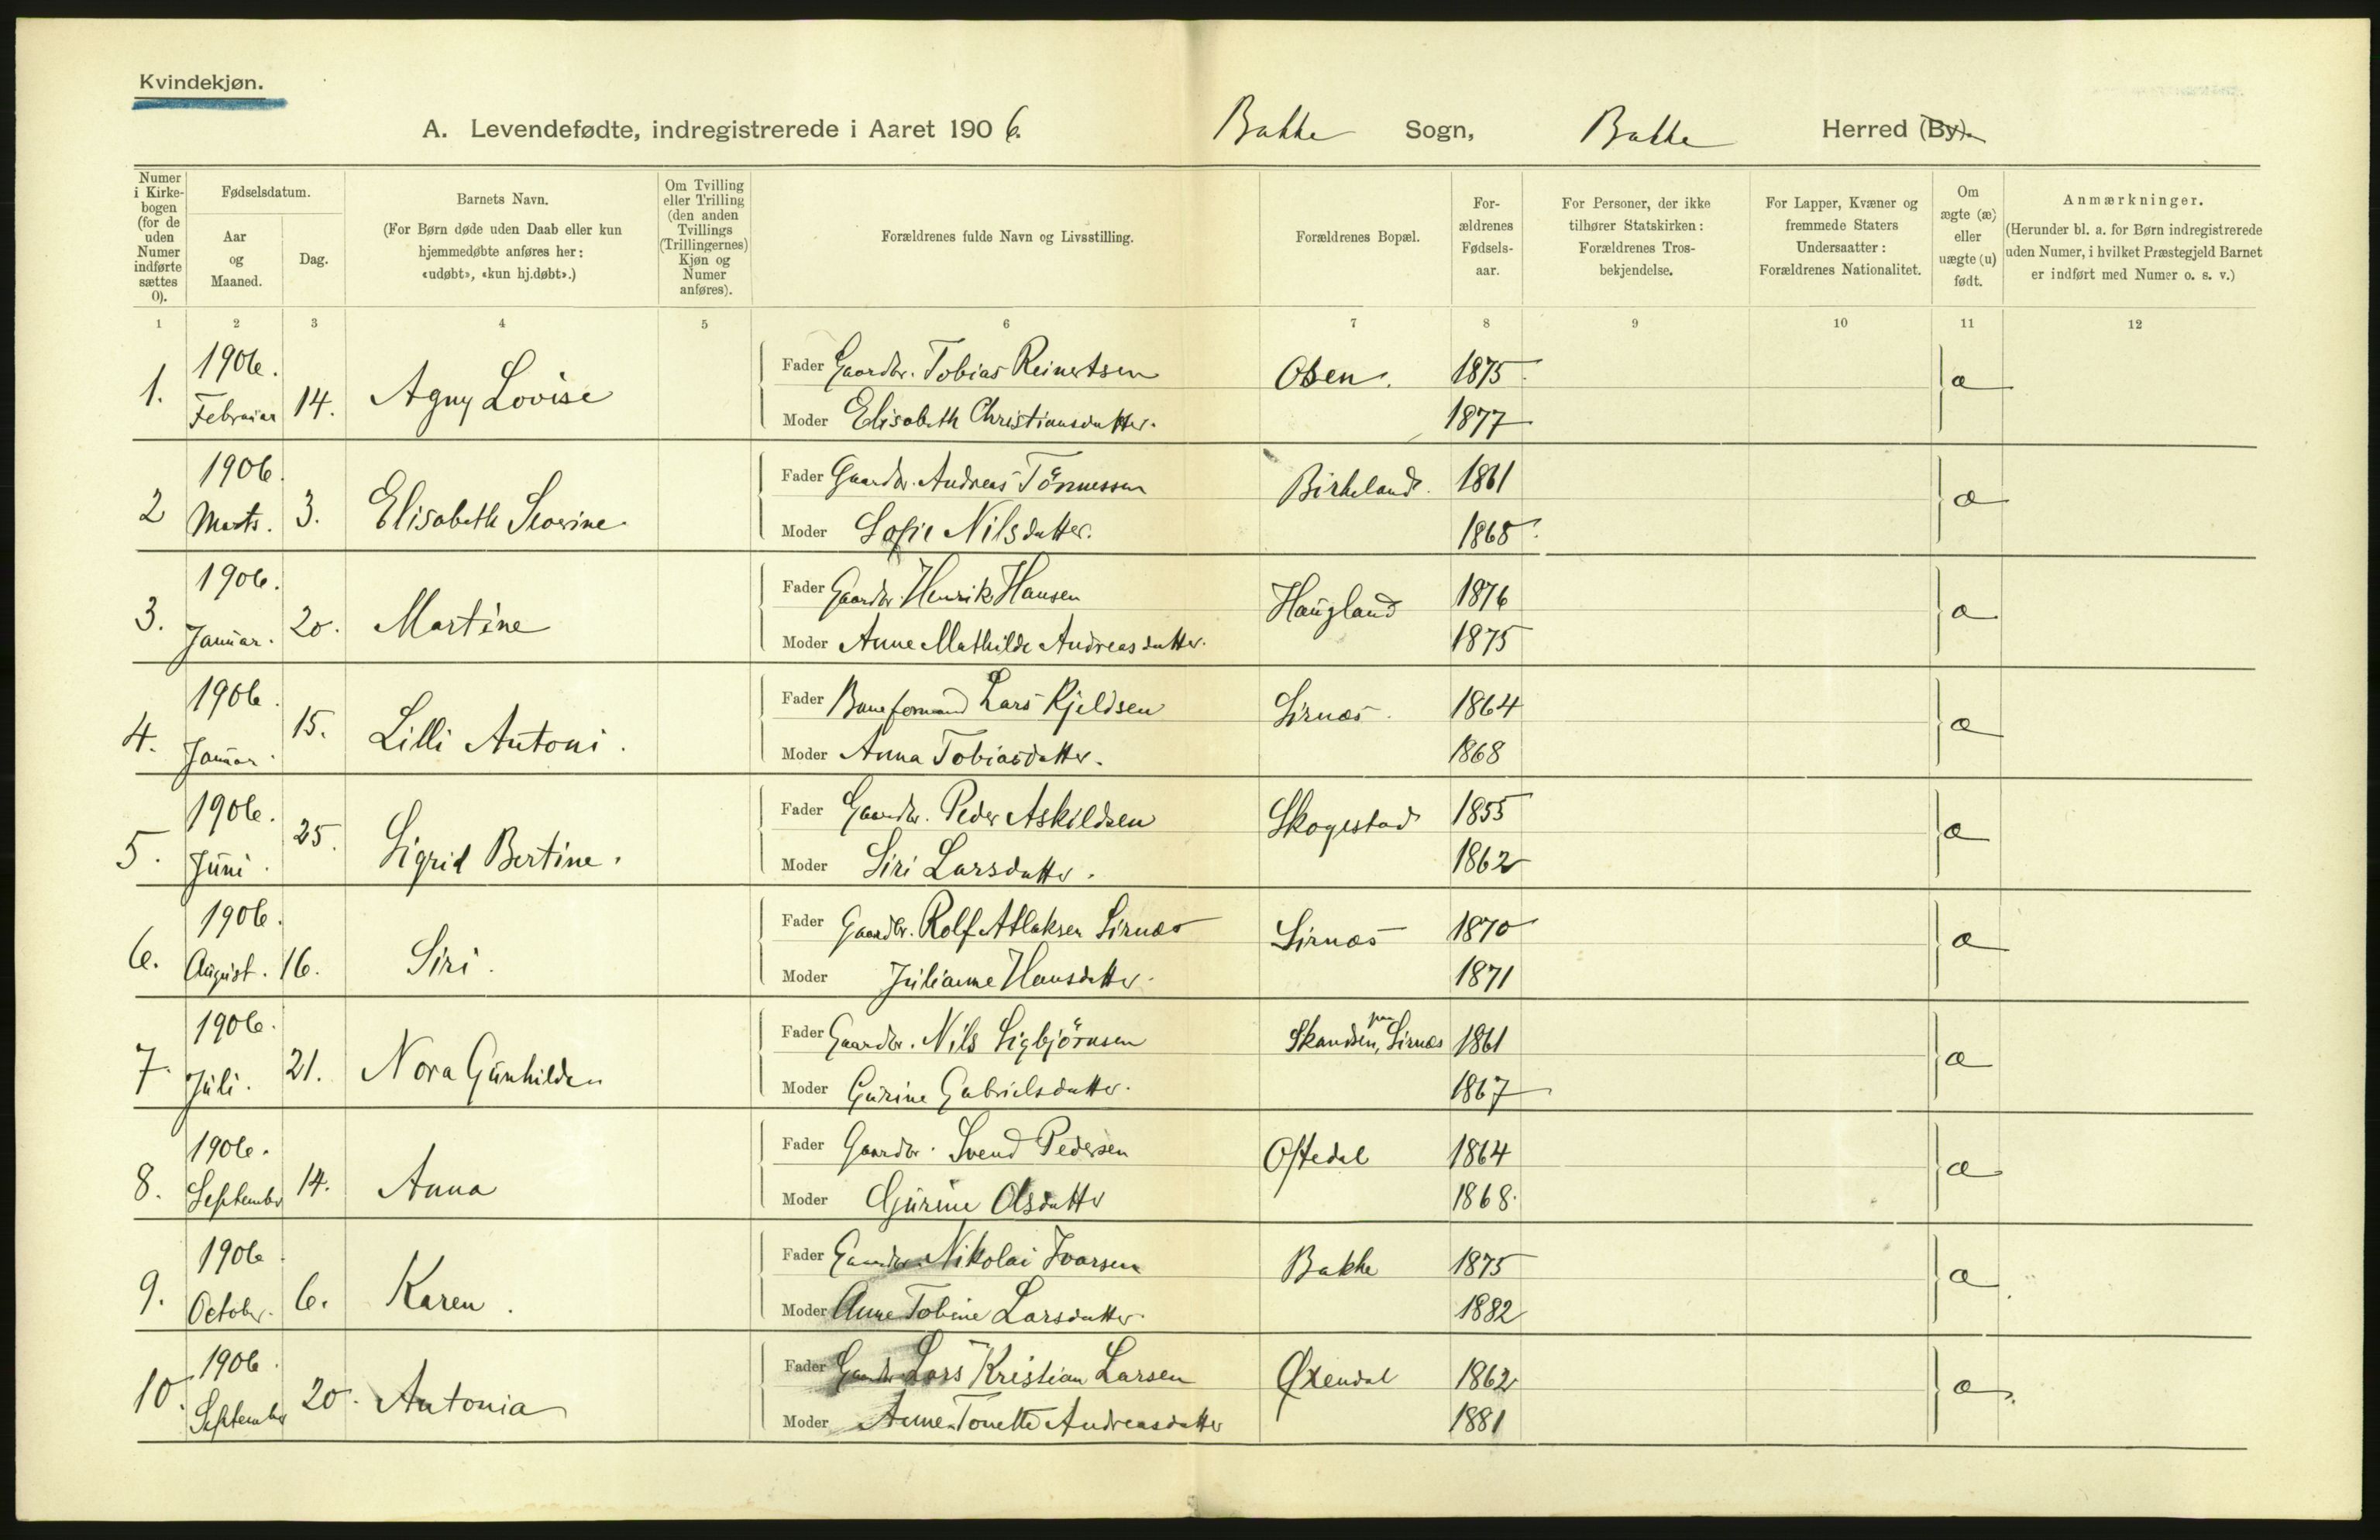 Kvindekjøn.
A. Levendefødte, indregistrerede i Aaret 1906. Bakke Sogn, Bakke Herred (By).
Numer i Kirkebogen (for de uden Numer indførte sættes 0).
Fødselsdatum.
Aar og Maaned.
Dag.
Barnets Navn.
(For Børn døde uden Daab eller kun hjemmedøbte anføres her: «udøbt», «kun hj.døbt».)
Om Tvilling eller Trilling (den anden Tvillings (Trillingernes) Kjøn og Numer anføres).
Forældrenes fulde Navn og Livsstilling.
Forældrenes Bopæl.
Forældrenes Fødselsaar.
For Personer, der ikke tilhører Statskirken: Forældrenes Trosbekjendelse.
For Lapper, Kvæner og fremmede Staters Undersaatter: Forældrenes Nationalitet.
Om ægte (æ) eller uægte (u) født.
Anmærkninger.
(Herunder bl. a. for Børn indregistrerede uden Numer, i hvilket Præstegjeld Barnet er indført med Numer o. s. v.)
1 2 3 4 5 6 7 8 9 10 11 12
1. 1906. Februar 14. Agny Lovise Fader Gaardbr. Tobias Reinertsen Osen. 1875. æ
Moder Elisabeth Christiansdatter. 1877
2 1906. Marts. 3. Elisabeth Severine. Fader Gaardbr. Andreas Tönnessen Birkeland. 1861 æ
Moder Sofie Nilsdatter. 1865.
3. 1906. Januar. 20. Martine Fader Gaardbr. Henrik Hansen Haugland 1876 æ
Moder Anne Mathilde Andreasdatter. 1875
4. 1906. Januar. 15. Lilli Antoni. Fader Baneformand Lars Kjeldsen Sirnæs. 1864 æ
Moder Anna Tobiasdatter. 1868
5. 1906. Juni. 25. Sigrid Bertine. Fader Gaardbr. Peder Askildsen Skogestad 1855 æ
Moder Siri Larsdatter. 1862
6. 1906. August. 16. Siri. Fader Gaardbr. Rolf Atlaksen Sirnæs Sirnæs 1870 æ
Moder Julianne Hansdatter. 1871
7. 1906. Juli. 21. Nora Gunhilde Fader Gaardbr. Nils Sigbjörnsen Skandsen, paa Sirnæs 1861 æ
Moder Gurine Gabrielsdatter. 1867
8. 1906. September 14. Anna Fader Gaardbr. Svend Pedersen Oftedal 1864 æ
Moder Gurine Olsdatter 1868.
9. 1906. October. 6. Karen. Fader Gaardbr. Nikolai Ivarsen Bakke 1875 æ.
Moder Anne Tobine Larsdatter. 1882
10. 1906. September 20. Antonia Fader Gaardbr. Lars Kristian Larsen Øxendal 1862 æ.
Moder Anne Tonette Andreasdatter 1881